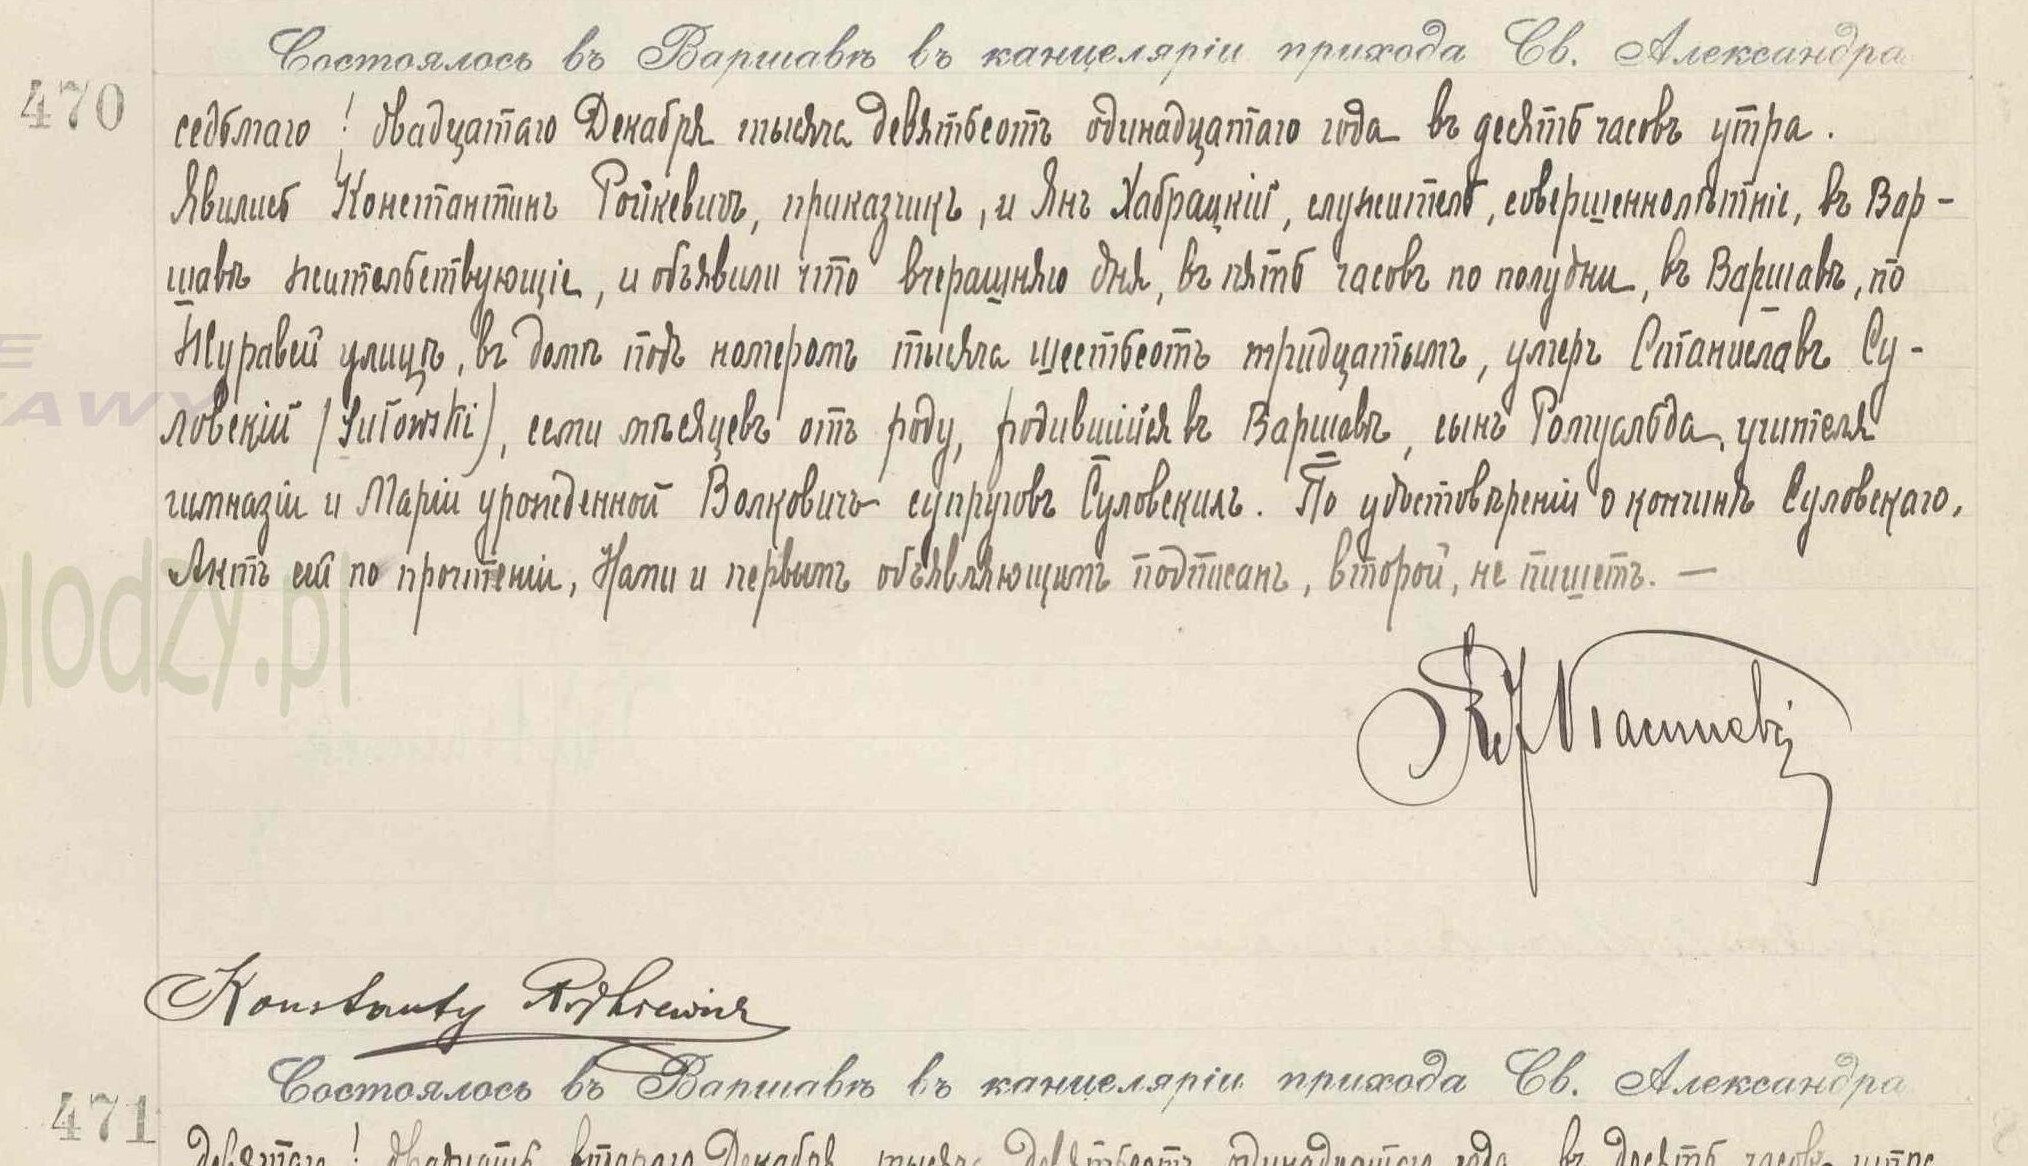 Состоялось въ Варшавѣ въ канцеляріи прихода Св. Александра
470
седьмаго / двадцатаго Декабря тысяча девятьсотъ одинадцатаго года въ десять часовъ утра.
Явились Константинъ Ройкевичъ, приказчикъ, и Янъ Хабрацкій, служитель, совершеннолѣтніе, въ Вар-
шавѣ жительствующіе, и объявили что вчерашняго дня, въ пять часовъ по полудни, въ Варшавѣ, по
Журавей улицѣ, въ домѣ подъ номеромъ тысяча шестьсотъ тридцатымъ, умеръ Станиславъ Су-
ловскій /Sułowski/, семи мѣсяцевъ отъ роду, родившійся въ Варшавѣ, сынъ Ромуальда, учителя
гимназіи и Маріи урожденной Волковичъ супруговъ Суловскихъ. По удостовѣреніи о кончинѣ Суловскаго,
Актъ сей по прочтеніи, Нами и первымъ объявляющимъ подписанъ, второй, не пишетъ. —
Konstanty Rojkiewicz
Состоялось въ Варшавѣ въ канцеляріи прихода Св. Александра
471
девятаго / двадцать втораго Декабря тысяча девятьсотъ одинадцатаго года въ десять часовъ утра
E
AWY
lodzy.pl